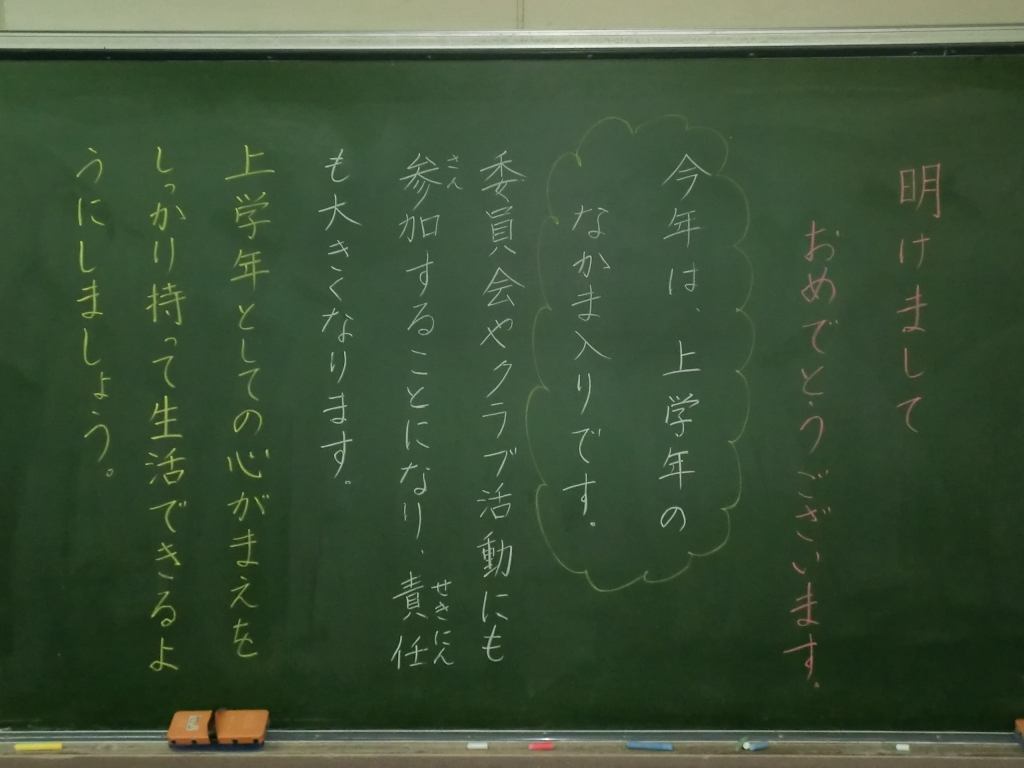 明けまして
おめでとうございます。
今年は、上学年の
なかま入りです。
委員会やクラブ活動にも
参加することになり、責任
さん
せきにん
も大きくなります。
上学年としての心がまえを
しっかり持って生活できるよ
うにしましょう。